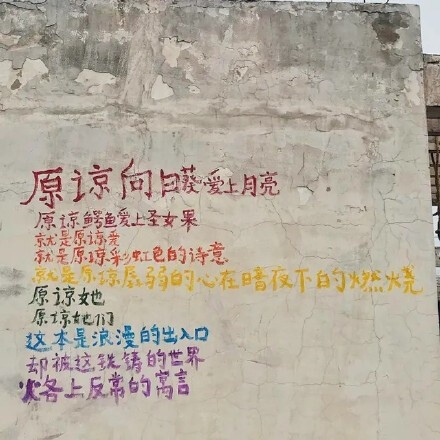 原谅向日葵爱上月亮
原谅鳄鱼爱上圣女果
就是原谅光
就是原谅彩虹色的诗意
就是原谅孱弱的心在暗夜下的燃烧
原谅她
原谅她们
这本是浪漫的出入口
却被这铁铸的世界
烙上反常的寓言